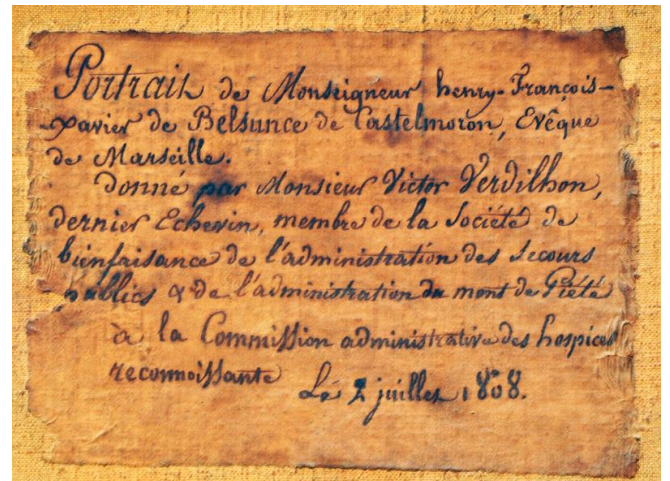 Portrait de Monseigneur henry-François-
xavier de Belsunce de Castelmoron, Evêque
de Marseille.
donné par Monsieur Victor Verdilhon,
dernier Echevin, membre de la Société de
bienfaisance de l'administration des Secours
publics & de l'administration du mont de Piété
à la Commission administrative des hospices
reconnoissante
Le 2 juillet 1808.